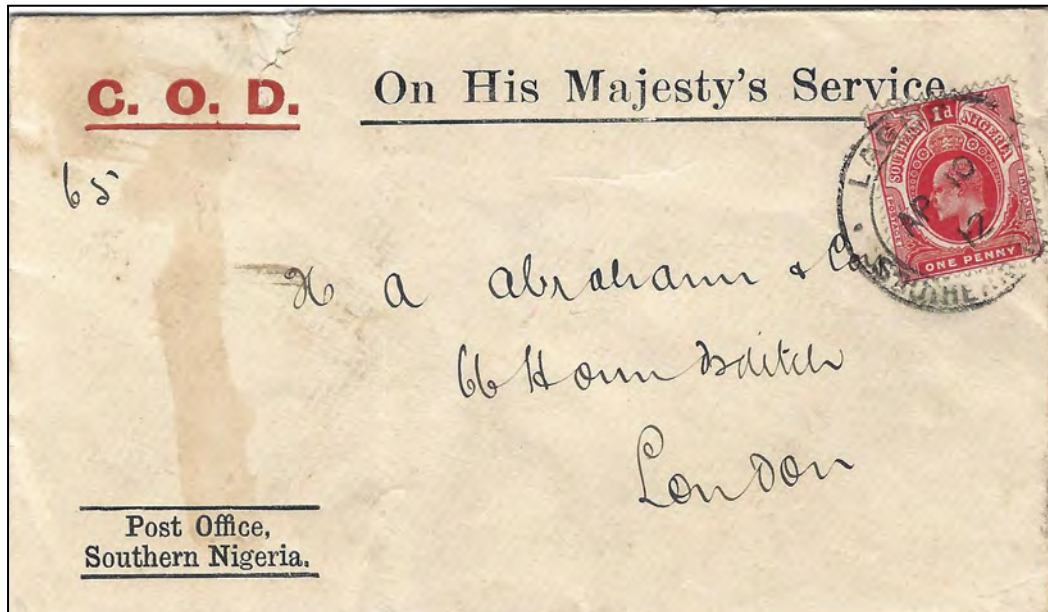 C. O. D. On His Majesty's Service
65
SOUTHERN NIGERIA
1d
POSTAGE
ONE PENNY
LAGOS
AP 10
12
SOUTHERN
H A Abraham & Co
66 Hounsditch
London
Post Office,
Southern Nigeria.